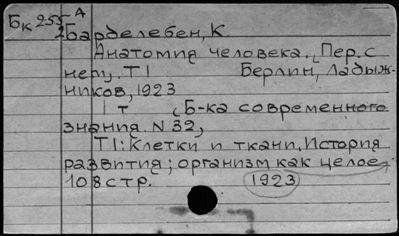 Бк 255 А
2
Барделебен, К.
Анатомия человека. Пер. с
нем. Т I Берлин, Ладыж-
ников, 1923
1 т (Б-ка современного
знания. N 32,
Т I: Клетки и ткани. История
развития; организм как целое,
108 стр. 1923